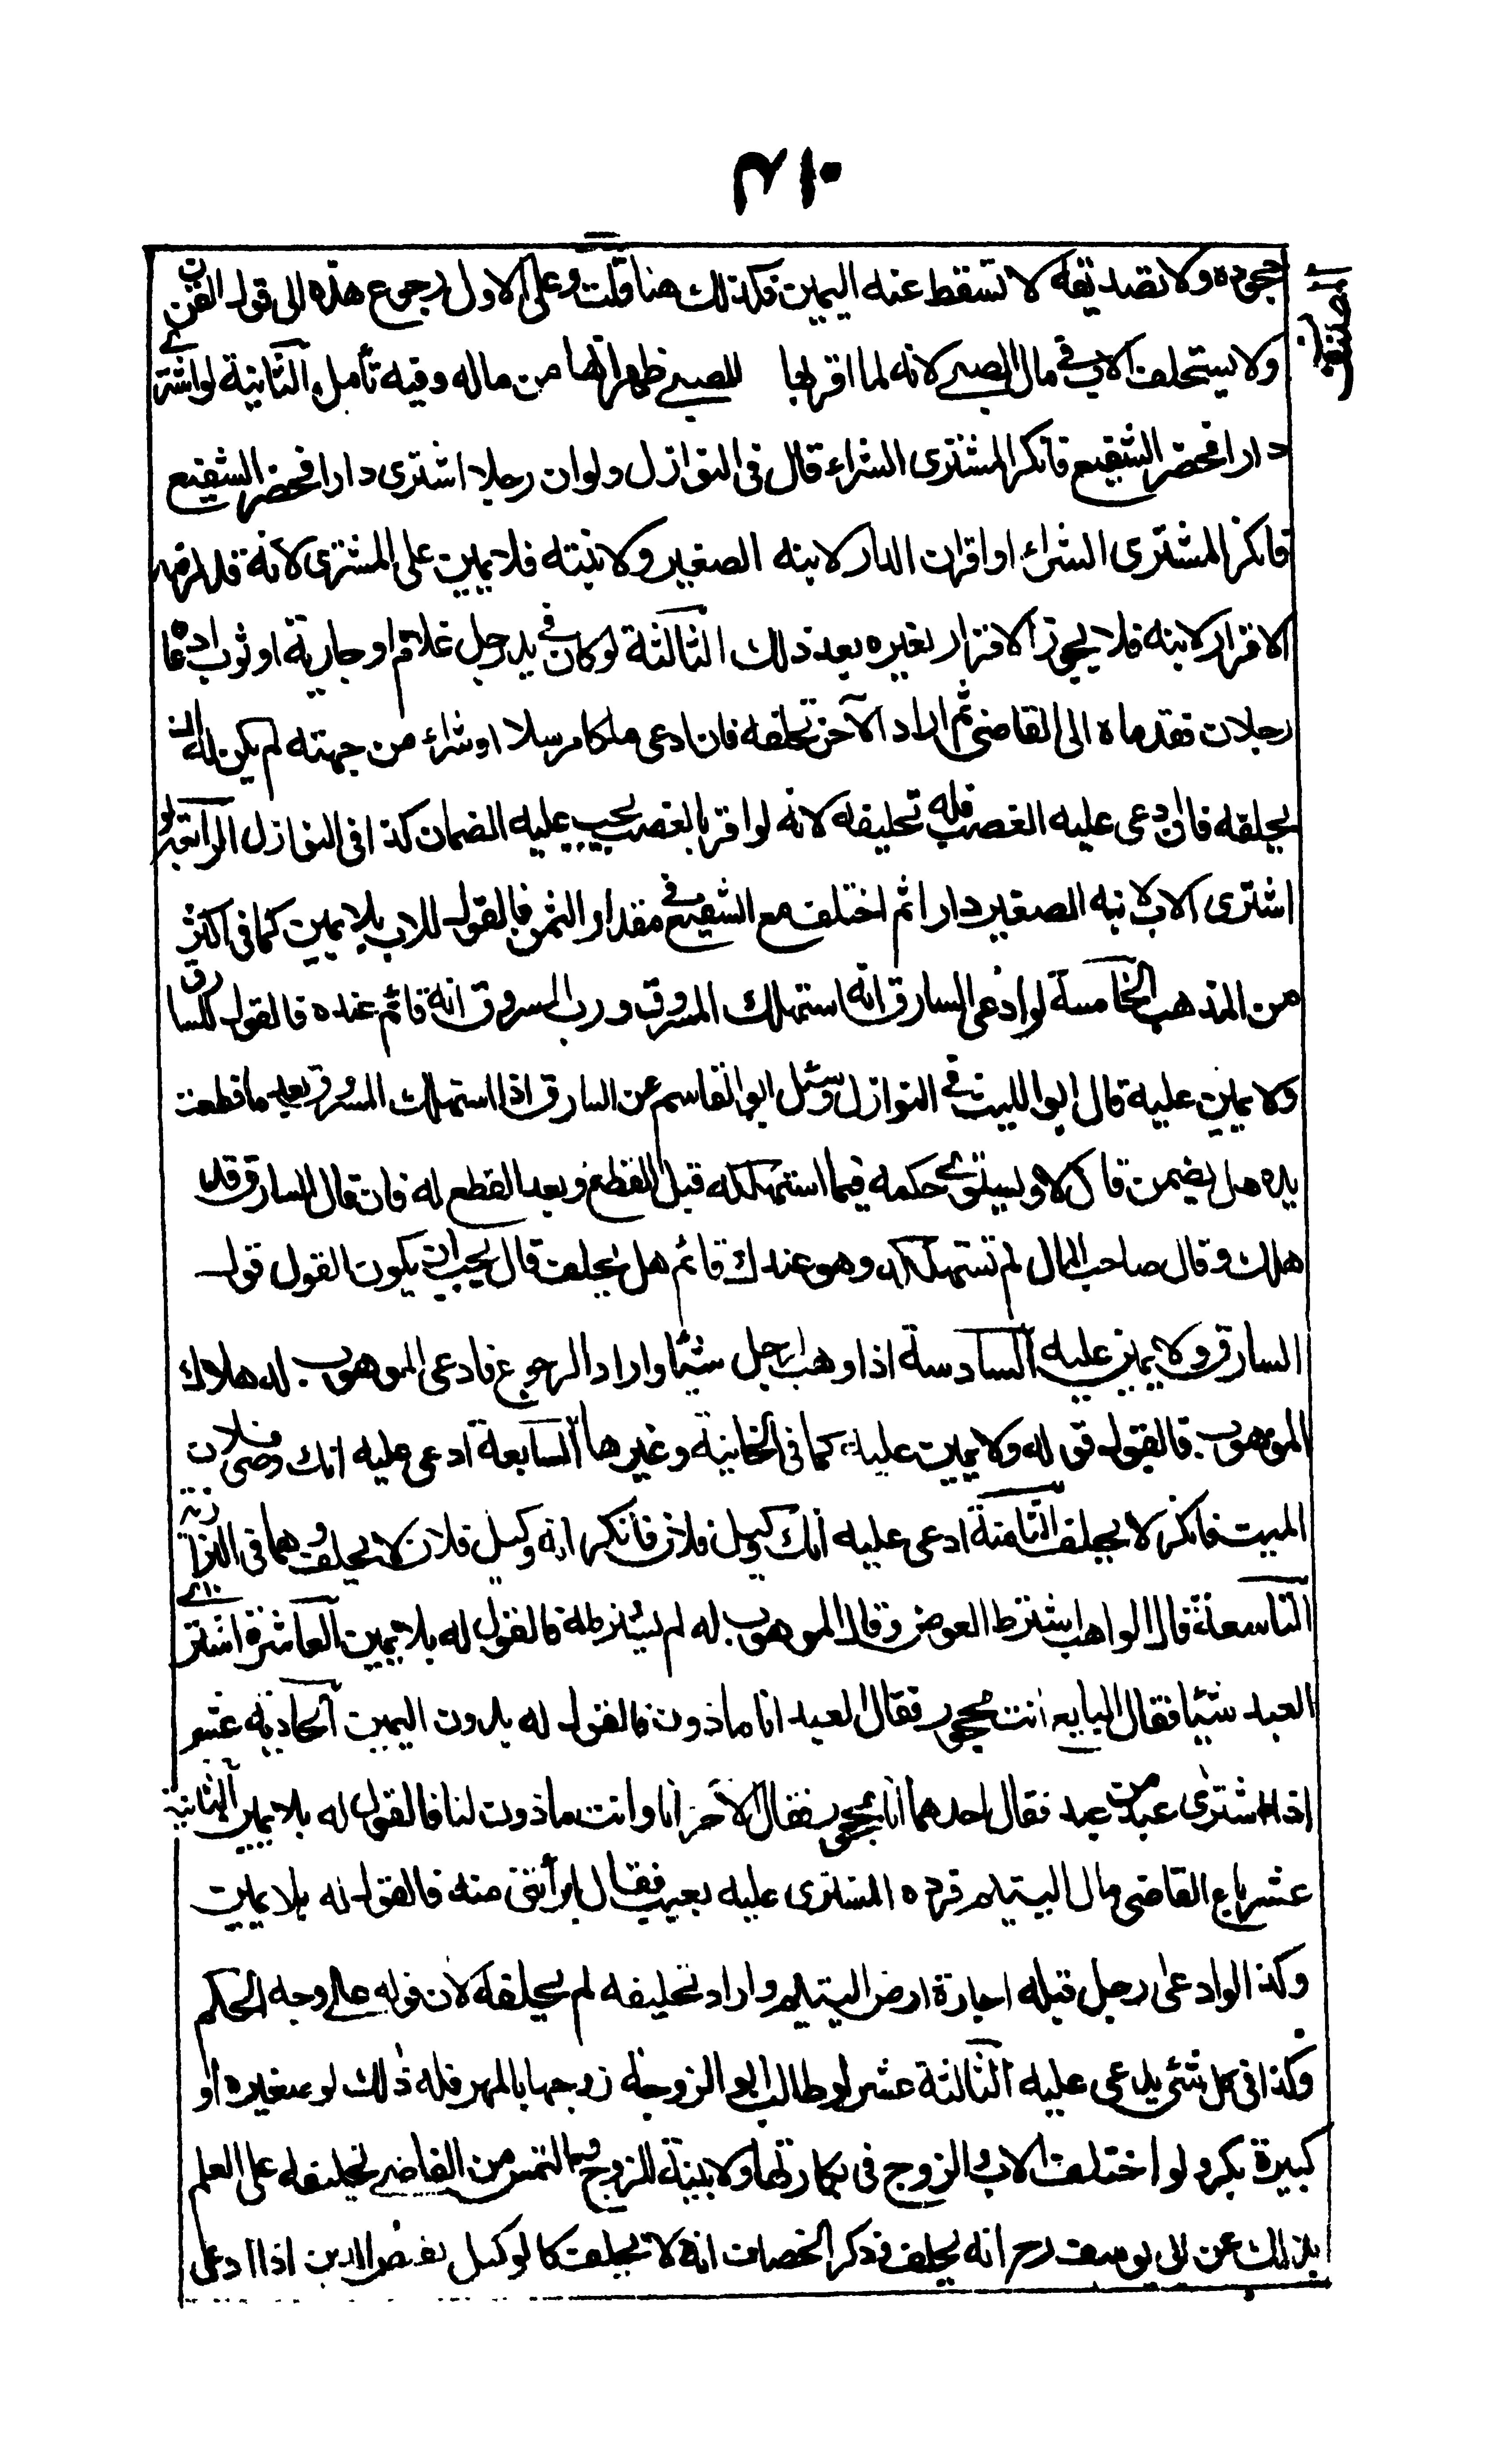 ٢١٠
جحوده ولا تصديقه لا تسقط عنه اليمين فكذلك هنا قلت وعلى الاول رجوع هذه الى قول القن
ولا يستحلف الاب في مال الصبي لانه لما اقر بها للصبي ظهر انها من ماله وفيه تأمل الثانية لو اشترى
دارا فحضر الشفيع فانكر المشترى الشراء قال فى النوازل ولو ان رجلا اشترى دارا فحضر الشفيع
فانكر المشترى الشراء او اقر ان الدار لابنه الصغير ولا بينة فلا يمين على المشترى لانه قد لزمه
الاقرار لابنه فلا يجوز الاقرار لغيره بعد ذلك الثالثة لو كان فى يد رجل غلام او جارية او ثوب ادعاه
رجلان فقدماه الى القاضى ثم اراد الآخر تحليفه فان ادعى ملكا مرسلا او شراء من جهته لم يكن له ان
يحلفه فان ادعى عليه الغصب فله تحليفه لانه لو اقر بالغصب يجب عليه الضمان كذا فى النوازل الرابعة لو
اشترى الاب لابنه الصغير دارا ثم اختلف مع الشفيع فى مقدار الثمن فالقول للاب بلا يمين كما فى اكثر
من المذهب الخامسة لو ادعى السارق انه استهلك المسروق ورب المسروق انه قائم عنده فالقول للسارق
ولا يمين عليه قال ابو الليث فى النوازل وسئل ابو القاسم عن السارق اذا استهلك المسروق بعد ما قطعت
يده هل يضمن قال لا ويستوى حكمه فيما استهلكه قبل القطع وبعد القطع له فان قال السارق قد
هلك وقال صاحب المال لم تستهلكه وهو عندك قائم هل يحلف قال يجب ان يكون القول قول
السارق ولا يمين عليه السادسة اذا وهب رجل شيئا واراد الرجوع فادعى الموهوب له هلاك
الموهوب فالقول قوله ولا يمين عليه كما فى الخانية وغيرها السابعة ادعى عليه انك وصى فلان
الميت فانكر لا يحلف الثامنة ادعى عليه انك وكيل فلان فانكر انه وكيل فلان لا يحلف وهما فى البزازية
التاسعة قال الواهب اشترط العوض وقال الموهوب له لم يشترطه فالقول له بلا يمين العاشرة اشترى
العبد شيئا فقال البايع انت محجور فقال العبد انا ماذون فالقول له بدون اليمين الحادية عشر
اذا اشترى عبد من عبد فقال احدهما انا محجور فقال الآخر انا وانت ماذون لنا فالقول له بلا يمين الثانية
عشر باع القاضى مال اليتيم فرده المشترى عليه بعيب فقال ابرأتنى منه فالقول له بلا يمين
وكذا لو ادعى رجل قبله اجارة ارض اليتيم واراد تحليفه لم يحلفه لان قوله على وجه الحكم
وكذا فى كل شئ يدعى عليه الثالثة عشر لو طالب ابو الزوجة زوجها بالمهر فله ذلك لو صغيرة او
كبيرة بكر ولو اختلف الاب والزوج فى بكارتها ولا بينة للزوج والتمس من القاضى تحليفه على العلم
بذلك عن ابى يوسف رح انه يحلف وذكر الخصاف انه لا يحلف كالوكيل بقبض الدين اذا ادعى